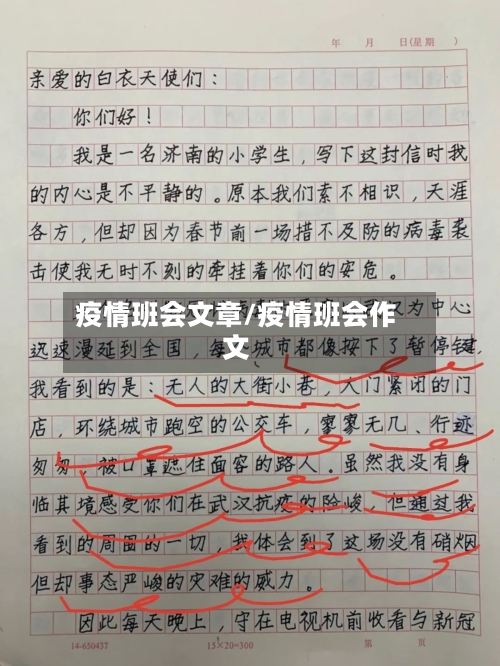 年 月 日(星期 )
亲爱的白衣天使们：
你们好！
我是一名济南的小学生，写下这封信时我
的内心是不平静的。原本我们素不相识，天涯
各方，但却因为春节前一场措不及防的病毒袭
击使我无时不刻的牵挂着你们的安危。
疫情班会文章/疫情班会作
文
汉为中心
迅速漫延到全国，每 城市都像按下了暂停键，
我看到的是：无人的大街小巷，大门紧闭的门
店，环绕城市跑空的公交车，寥寥无几、行迹
匆匆、被口罩遮住面容的路人。虽然我没有身
临其境感受你们在武汉抗疫的险峻，但通过我
看到的周围的一切，我体会到了这场没有硝烟
但却事态严峻的灾难的威力。
因此每天晚上，守在电视机前收看与新冠
14-650437 15×20=300 第 页